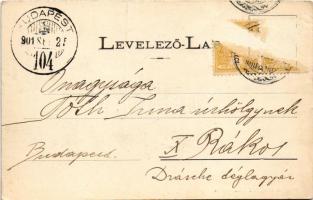 BUDAPEST
901
104
LEVELEZŐ-LA
Őnagysága
Tóth Irma úrhölgynek
X Rákos
Budapest.
Drasche téglagyár